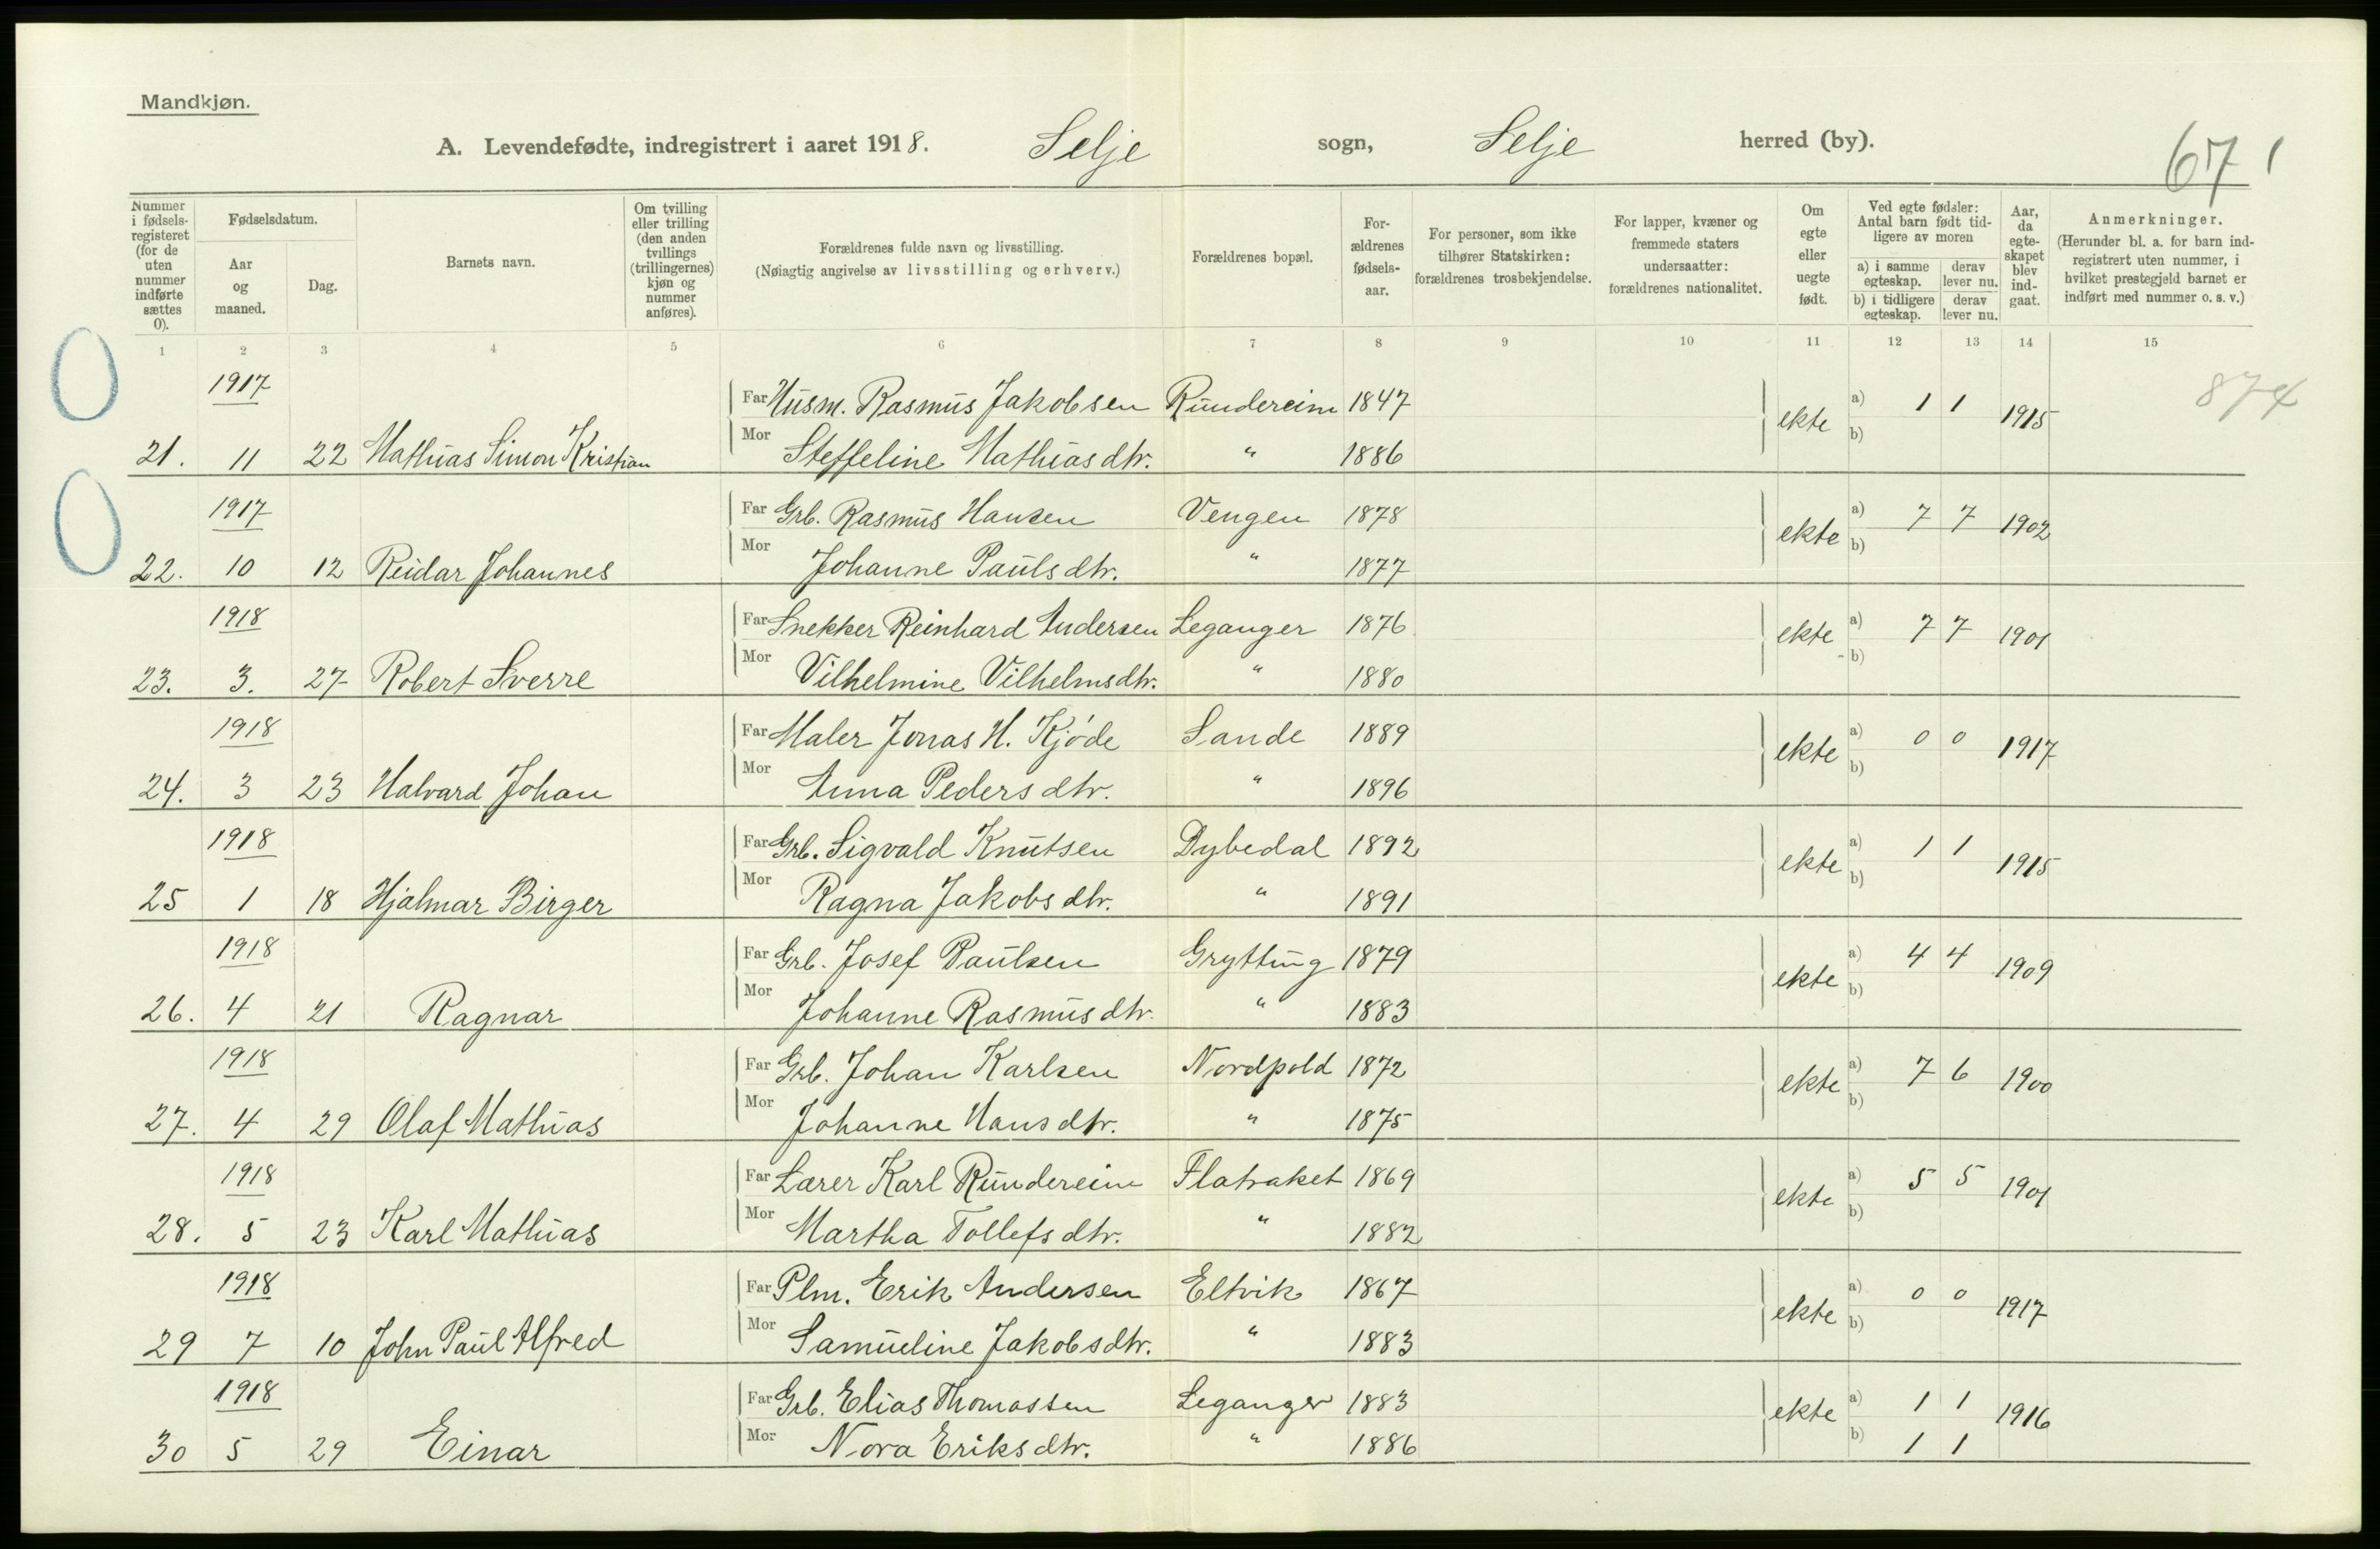 Mandkjøn.
A. Levendefødte, indregistrert i aaret 1918. Selje sogn, Selje herred (by).
671
Nummer i fødsels-registeret (for de uten nummer indførte sættes 0).
Fødselsdatum.
Aar og maaned.
Dag.
Barnets navn.
Om tvilling eller trilling (den anden tvillings (trillingernes) kjøn og nummer anføres).
Forældrenes fulde navn og livsstilling.
(Nøiagtig angivelse av livsstilling og erhverv.)
Forældrenes bopæl.
For-ældrenes fødsels-aar.
For personer, som ikke tilhører Statskirken: forældrenes trosbekjendelse.
For lapper, kvæner og fremmede staters undersaatter: forældrenes nationalitet.
Om egte eller uegte født.
Ved egte fødsler: Antal barn født tid-ligere av moren
a) i samme egteskap. derav lever nu.
b) i tidligere egteskap. derav lever nu.
Aar, da egte-skapet blev ind-gaat.
Anmerkninger.
(Herunder bl. a. for barn ind-registrert uten nummer, i hvilket prestegjeld barnet er indført med nummer o. s. v.)
1 2 3 4 5 6 7 8 9 10 11 12 13 14 15
1917 Far Husm. Rasmus Jakobsen Rundereim 1847 ekte a) 1 1 1915 874
21. 11 22 Mathias Simon Kristian Mor Steffeline Mathiasdtr. " 1886 b)
1917 Far Grb. Rasmus Hansen Vengen 1878 ekte a) 7 7 1902
22. 10 12 Reidar Johannes Mor Johanne Paulsdtr. " 1877 b)
1918 Far Snekker Reinhard Andersen Leganger 1876 ekte a) 7 7 1901
23. 3. 27 Robert Sverre Mor Vilhelmine Vilhelmsdtr. " 1880 b)
1918 Far Maler Jonas H. Kjøde Sande 1889 ekte a) 0 0 1917
24. 3 23 Halvard Johan Mor Anna Pedersdtr. " 1896 b)
1918 Far Grb. Sigvald Knutsen Dybedal 1892 ekte a) 1 1 1915
25 1 18 Hjalmar Birger Mor Ragna Jakobsdtr. " 1891 b)
1918 Far Grb. Josef Paulsen Grytting 1879 ekte a) 4 4 1909
26. 4 21 Ragnar Mor Johanne Rasmusdtr. " 1883 b)
1918 Far Grb. Johan Karlsen Nordpold 1872 ekte a) 7 6 1900
27. 4 29 Olaf Mathias Mor Johanne Hansdtr. " 1875 b)
1918 Far Lærer Karl Rundereim Flatraket 1869 ekte a) 5 5 1901
28. 5 23 Karl Mathias Mor Martha Tollefsdtr. " 1882 b)
1918 Far Plm. Erik Andersen Eltvik 1867 ekte a) 0 0 1917
29 7 10 John Paul Alfred Mor Samueline Jakobsdtr. " 1883 b)
1918 Far Grb. Elias Thomassen Leganger 1883 ekte a) 1 1 1916
30 5 29 Einar Mor Nora Eriksdtr. " 1886 b) 1 1